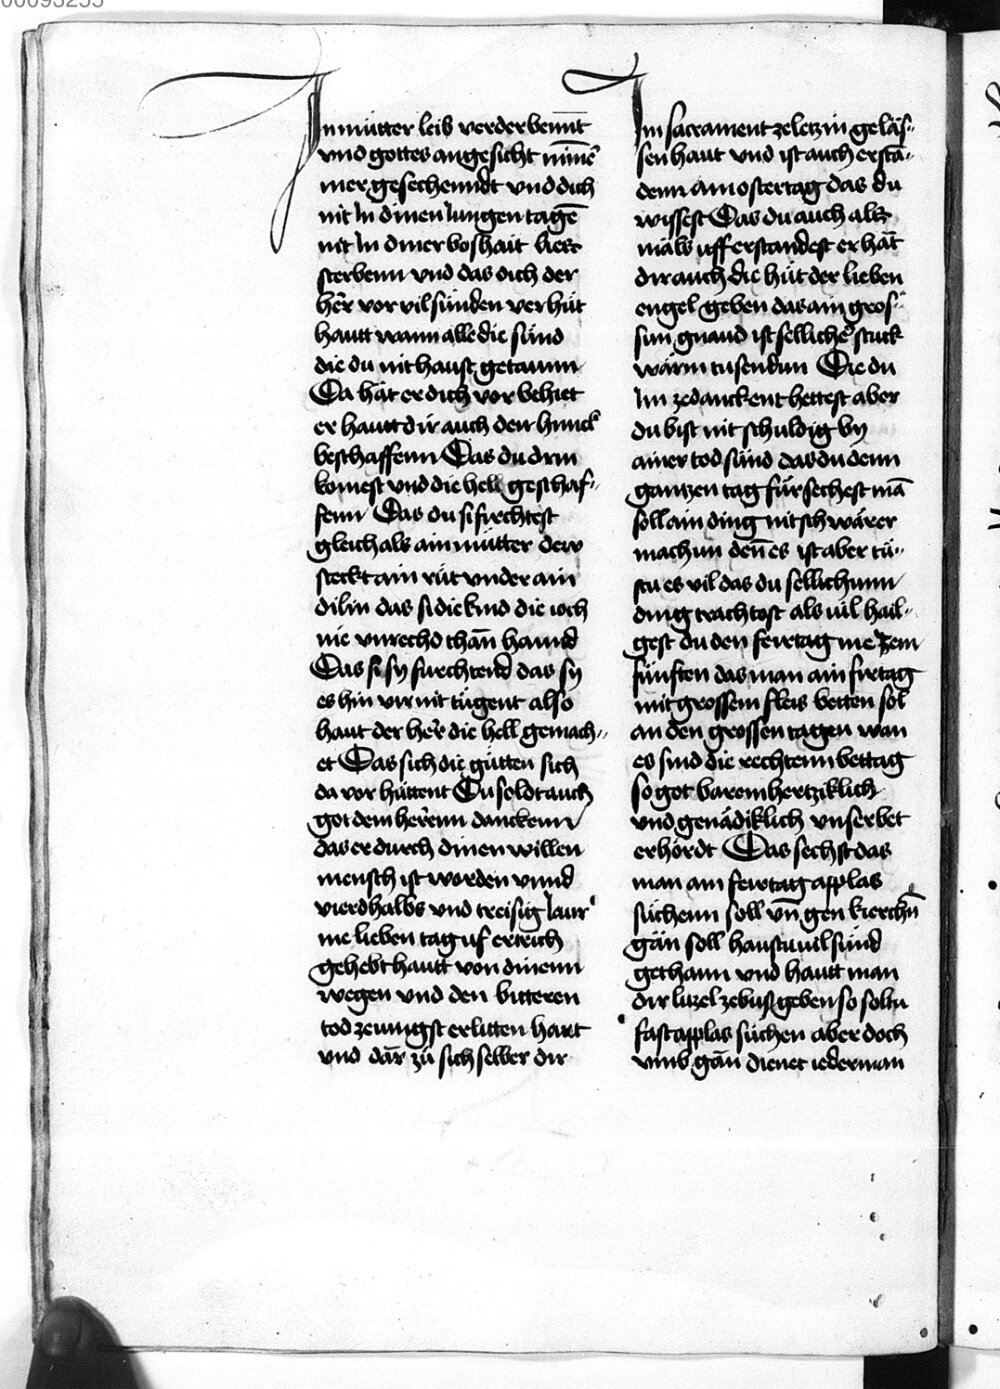 00095255
In mu̍tter leib verderbennt
vnd gottes angesicht nimē
mer gesechenndt vnd dich
nit In dinen Iungen tagē
nit In diner boshait liess
sterbenn vnd das dich der
her̄ vor vil sünden verhüt
hautt wann alle die sünd
die du nit haust getaunn
Da hat er dich vor behiet
er hautt dir auch den himel
beschaffenn Das du drin
komest vnd die hell geschaf-
fenn Das du si firchtest
gleich als ain mu̍tter dew
steckt ain rüt vnder ain
dilin das si die kind die ioch
nie vnrecho thān hannd
Das si sy furchtend das sy
es hin vir nit tügent also
haut der her̄ die hell gemach-
et Das sich die gu̍tten sich
da vor hüttent Du soldt auch
got dem her̄enn danckenn
das er durch dinen willen
mensch ist worden vnnd
vierdhalbs vnd treisig Iaur
nie lieben tag uf ertrich
gehebt hautt von dinenn
wegen vnd den bitteren
tod zeunngst erlitten haut
vnd dār zü sich selber dir
Im sacrament zeletzin geläs-
sen haut vnd ist auch erstā-
denn am ostertag das du
wissest Das du auch alle
mäls uff erstandest er hat
dir auch die hüt der lieben
engel geben das ain gros-
sun gnaud ist sellicher stuck
wärin tusendun Die du
Im zedanckent hettest aber
du bist nit schuldig by
ainer tod sünd das du denn
gantzen tag fürsechest mā
soll ain ding nit schwärer
machun den̄ es ist aber tü-
stu es vil das du sellichunn
ding trachtost als uil hail-
gest du den feirtag me Zem
fünften das man ain firtag
mit grossem fleis betten sol
an den grossen tagen wan
es sind die rechtenn bettag
so got baremhertziklich
vnd genädiklich vnser bet
erhördt Das sechst das
man am feirtag applas
süchenn soll vn̄ gen kierchn̄
gān soll haustu uil sünd
gethann vnd hautt man
dir lützel zebu̍s geben so soltu
fast applas süchen aber doch
vmb gān dienet iederman